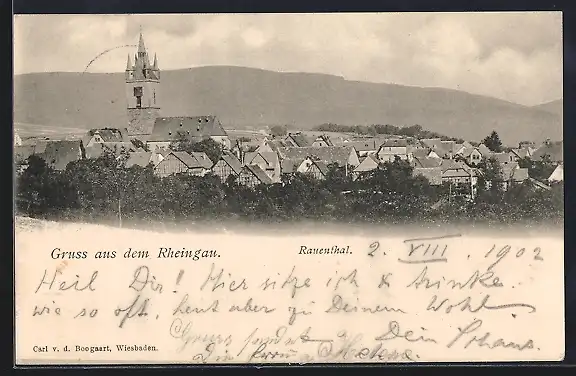 Gruss aus dem Rheingau.
Rauenthal. 2. VIII. 1902
Heil Dir! Hier sitze ich & trinke
wie so oft, heut aber zu Deinem Wohl!
Gruss Dein Johans.
Carl v. d. Boogaart, Wiesbaden.